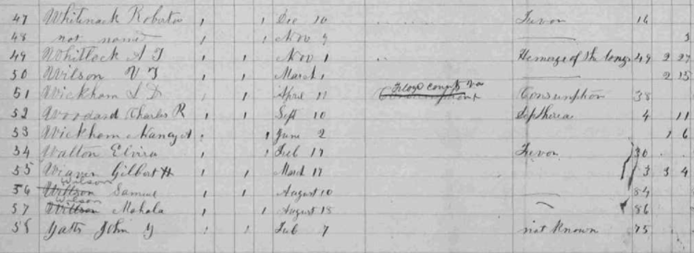 47 Whitenack Roberta 1 1 Dec 10 Fevor 16
48 not named 1 1 Nov 9 3
49 Whitlock A J 1 1 Nov 1 Hemorage of the lungs 49 2 27
50 Wilson V J 1 1 March 1 2 15
51 Wickham L D 1 1 April 11 Floyd County Va Consumption 38
52 Woodard Charles R 1 1 Sept 10 Diptheria 4 11
53 Wickham Nancy A 1 1 June 2 1 6
54 Walton Elvira 1 1 Feb 17 Fevor 30
55 Weaver Gilbert H 1 1 March 17 3 3 4
56 Wilson Samuel 1 1 August 10 84
57 Wilson Mahala 1 1 August 18 86
58 Yates John Y 1 1 Feb 7 not Known 75